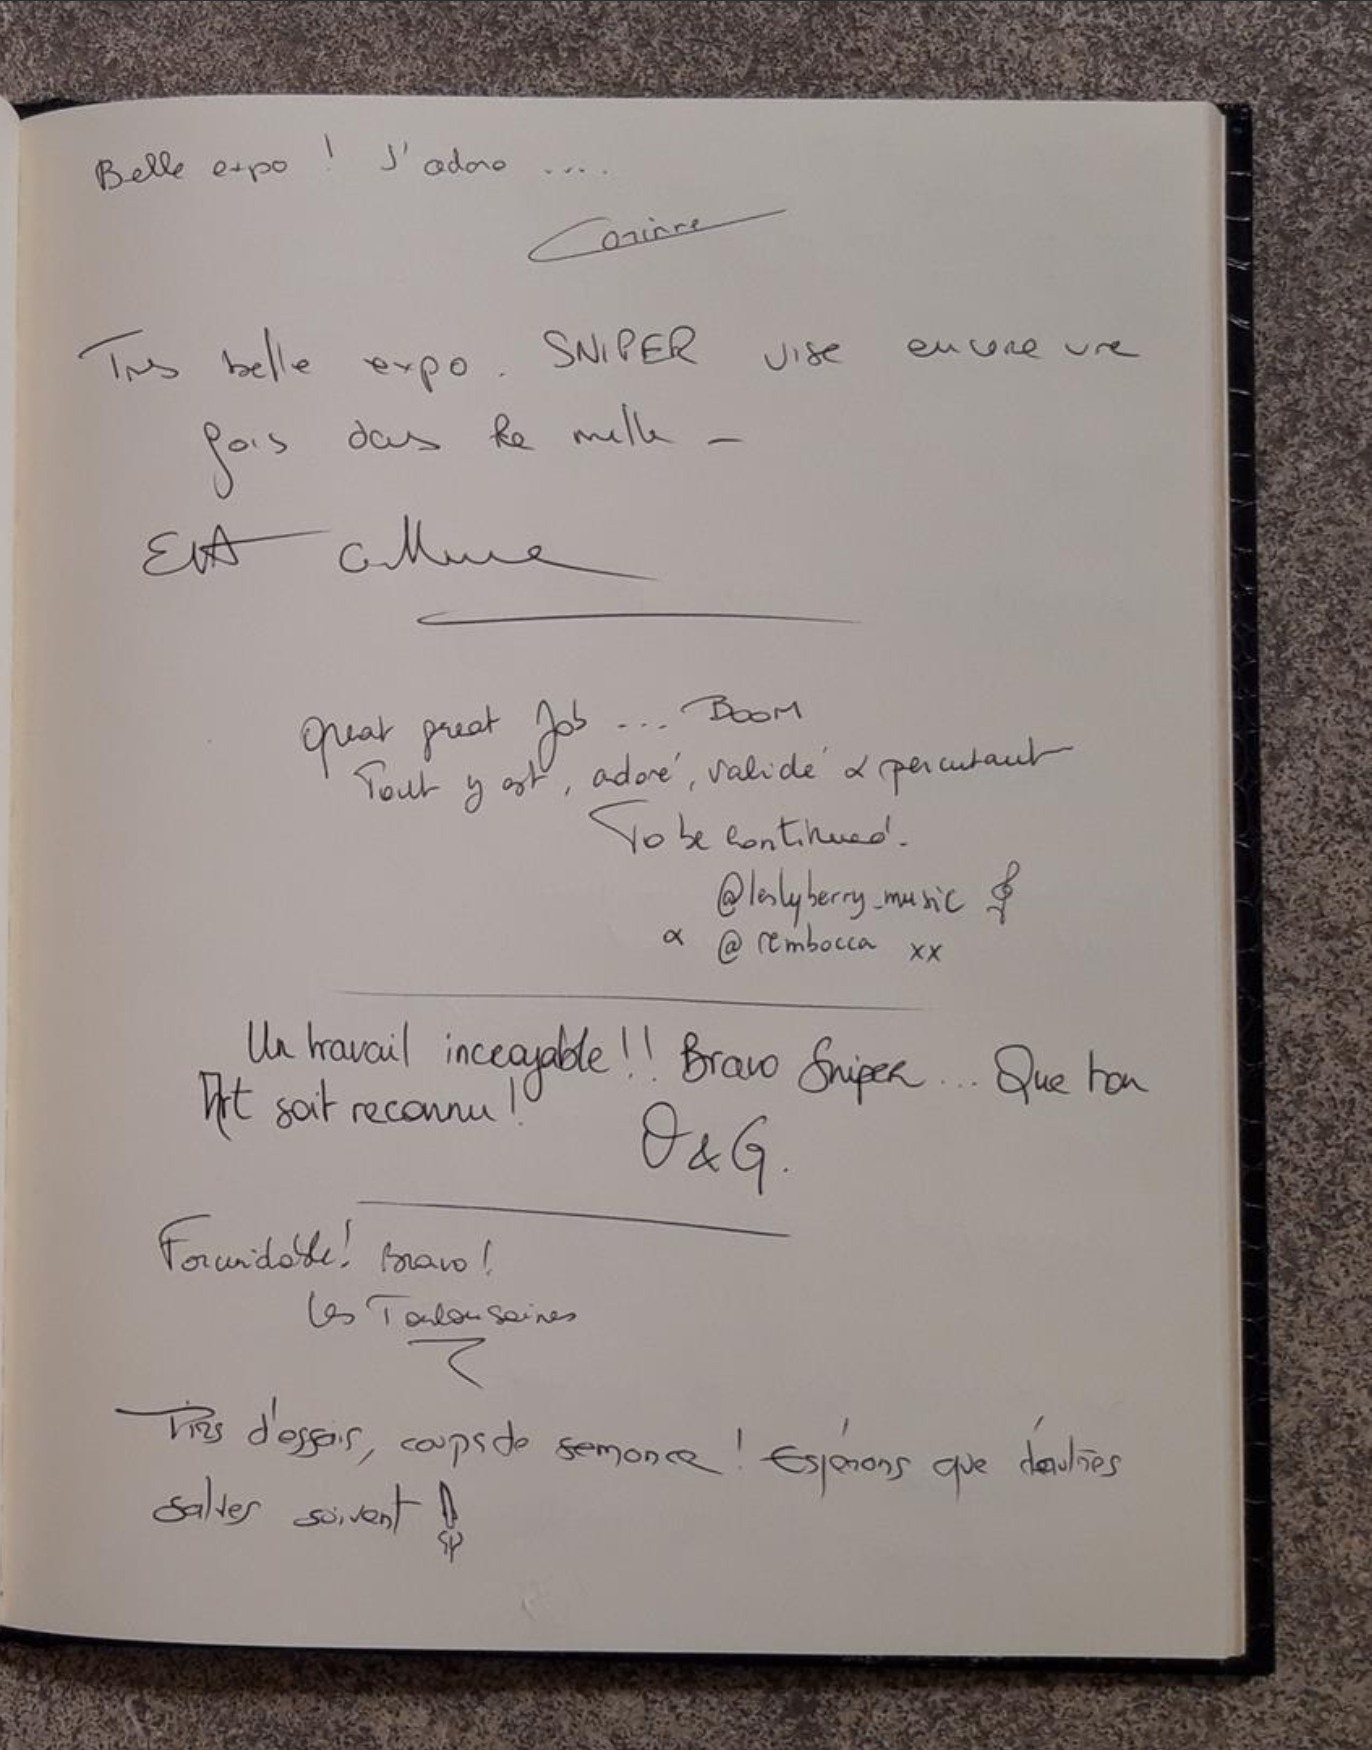 Belle expo ! J'adore ....
Corinne
Très belle expo. SNIPER vise encore une
fois dans le mille -
EVA
Great great Job ... BOOM
Tout y est, adoré, validé & percutant
To be continued.
@leslyberry_music
& @rembocca xx
Un travail incroyable !! Bravo Sniper ... Que ton
Art soit reconnu !
O & G.
Formidable ! Bravo !
Les Toulousaines
Tirs d'essais, coups de semonce ! Espérons que d'autres
salves suivent !